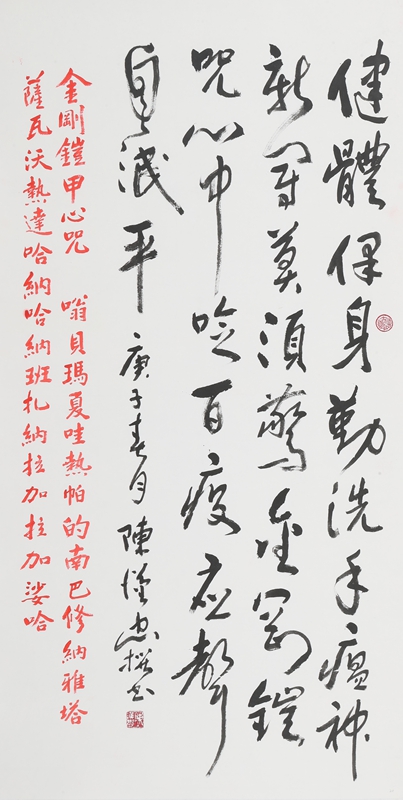 健體保身勤洗手瘟神
新冠莫須驚金剛鎧
咒心中唸百疫應聲
自滅平 庚子春月 陳漢忠撰書
金剛鎧甲心咒 嗡貝瑪夏哇熱帕的南巴修納雅塔
薩瓦沃熱達哈納哈納班扎納拉加拉加娑哈